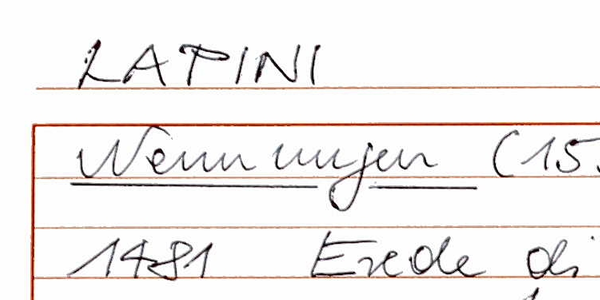 LAPINI
Nennungen (15
1481 Erede di